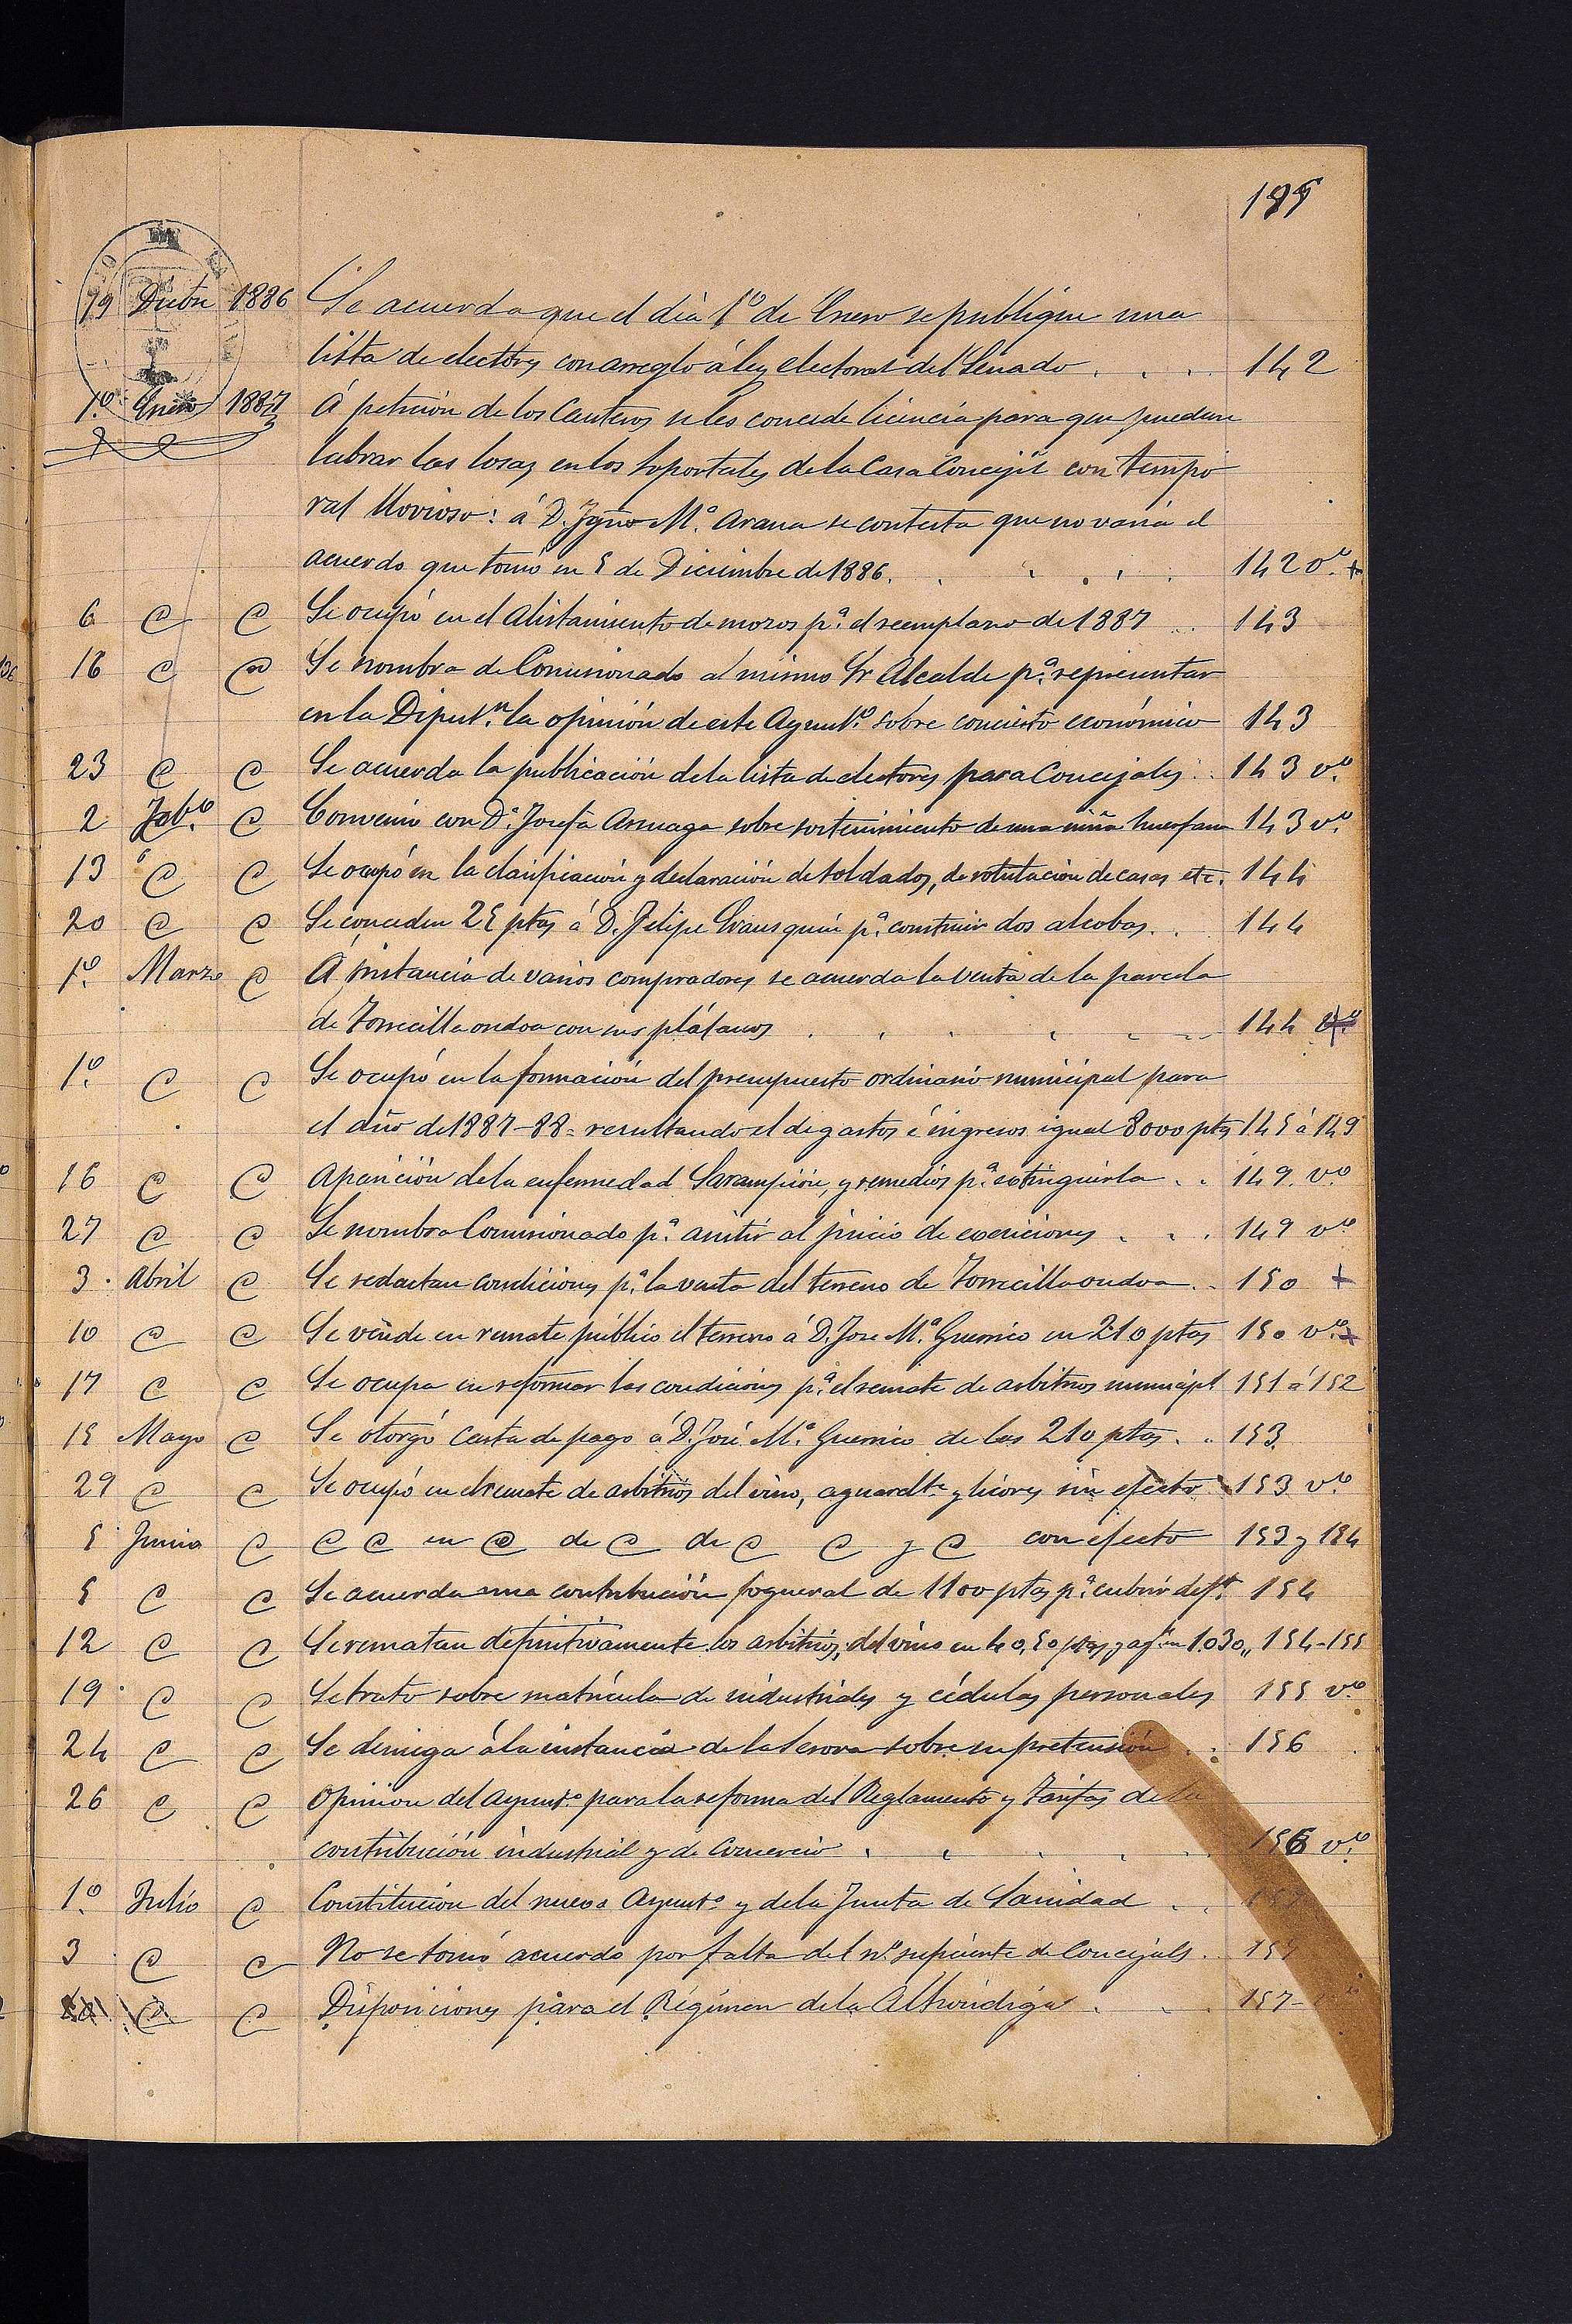 19 Dicbre 1886 Se acuerda que el dia 1º de Enero se publique una
lista de electores con arreglo á ley electoral del Senado . . . . 142
1º. Enero 1887 Á petición de los Canteros se les concede licencia para que puedan
labrar las losas en los soportales de la Casa Concejil con tempo-
ral llovioso: á D. Ygno Mª. Arana se contesta que no varía el
acuerdo que tomó en 5 de Diciembre de 1886. . . . . 142 vº. +
6 @ @ Se ocupó en el Alistamiento de mozos pª. el reemplazo de 1887 .. 143
16 @ @ Se nombra de Comisionado al mismo Sr Alcalde pª. representar
en la Diputn. la opinión de este Ayuntº. sobre concierto económico 143
23 @ @ Se acuerda la publicación de la lista de electores para Concejales .. 143 vº.
2 Febº. @ Convenio con Dª. Josefa Arsuaga sobre sostenimiento de una niña huerfana 143 vº.
13 @ @ Se ocupó en la clasificación y declaración de soldados, de rotulación de casas etc. 144
20 @ @ Se conceden 25 ptas á D. Felipe pª. construir dos alcobas . . 144
1º. Marzo @ A instancia de varios compradores se acuerda la venta de la parcela
de Torrecillaondoa con sus plátanos . . . . . 144 vº.
1º. @ @ Se ocupó en la formación del presupuesto ordinario municipal para
el año de 1887-88 = resultando el de gastos é ingresos igual 8000 ptas 145 á 149
16 @ @ Aparición de la enfermedad Sarampión, y remedios pª. extinguirla . . 149. vº
27 @ @ Se nombra Comisionado pª. asistir al juicio de exenciones . . . 149 vº
3. Abril @ Se redactan condiciones pª. la venta del terreno de Torrecillaondoa .. 150 +
10 @ @ Se vende en remate público el terreno á D. Jose Mª. Guernico en 210 ptas 150 vº. +
17 @ @ Se ocupa en reformar las condiciones pª. el remate de arbitrios municipl 151 á 152
15 Mayo @ Se otorgó carta de pago á D. José Mª. Guernico de las 210 ptas. . . 153
29 @ @ Se ocupó en el remate de arbitrios del vino, aguardte. y licores sin efecto 153 vº
5 Junio @ @ @ en @ de @ de @ @ y @ con efecto 153 y 154
5 @ @ Se acuerda una contribución fogueral de 1100 ptas pª. cubrir deft. 154
12 @ @ Se rematan definitivamente los arbitrios, del vino en 40,50 ptas y en 1.030,, 154-155
19. @ @ Se trató sobre matrícula de industriales y cédulas personales 155 vº
24 @ @ Se deniega á la instancia de la Serora sobre su pretensión . . 156
26 @ @ Opinion del Ayuntº. para la reforma del Reglamento y Tarifas de la
contribución industrial y de Comercio . . . . . 156 vº.
1º. Julio @ Constitución del nuevo Ayuntº. y de la Junta de Sanidad . . 157
3 @ @ No se tomó acuerdo por falta del nº. suficiente de Concejals . 157
@ @ Disposiciones para el Régimen de la Alhóndiga . . . 157-